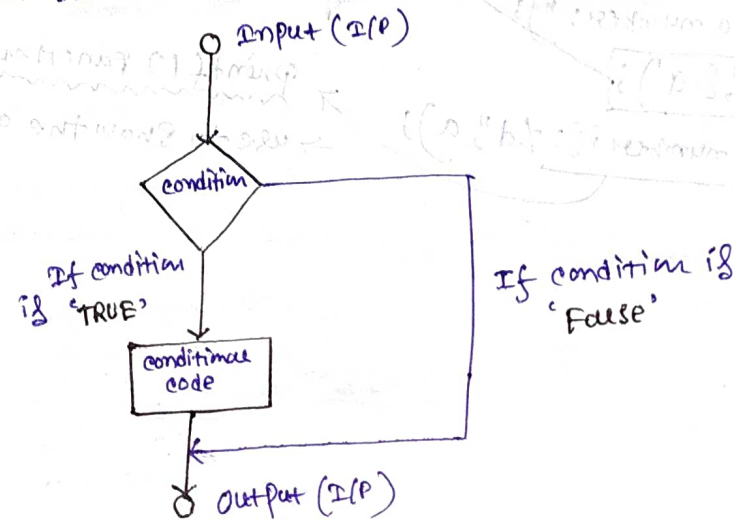 Input (I/P)
condition
If condition
is 'TRUE'
If condition is
'False'
conditional
code
Output (I/P)